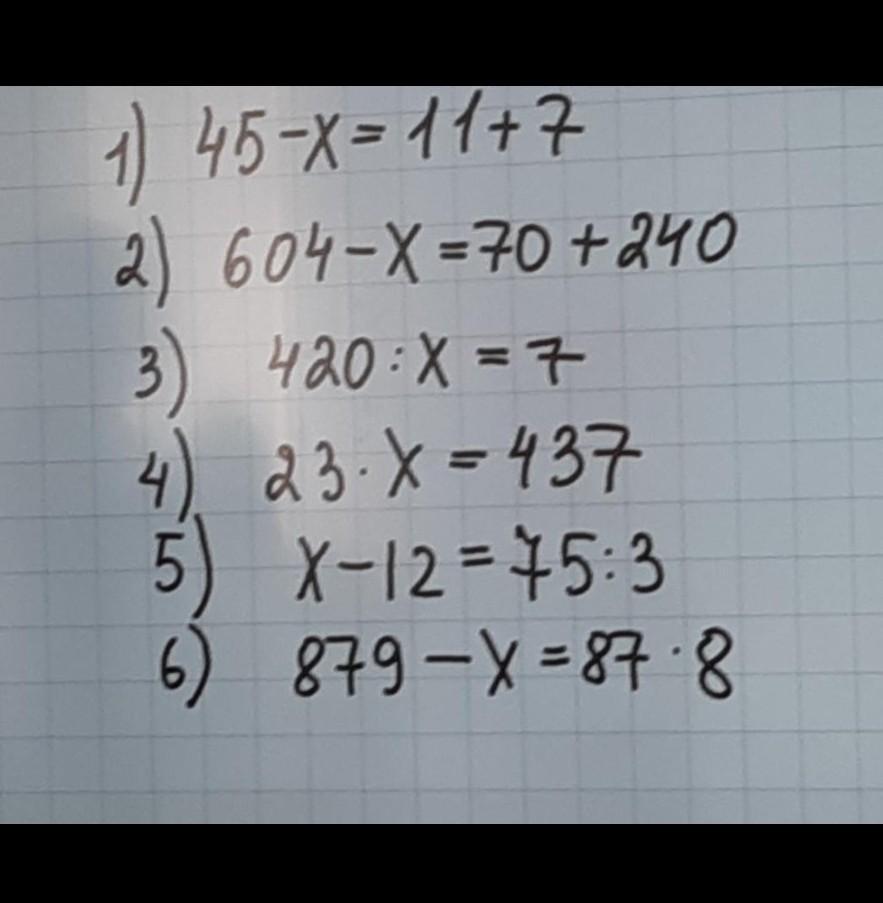 1) 45-x=11+7
2) 604-x=70+240
3) 420:x=7
4) 23·x=437
5) x-12=75:3
6) 879-x=87·8